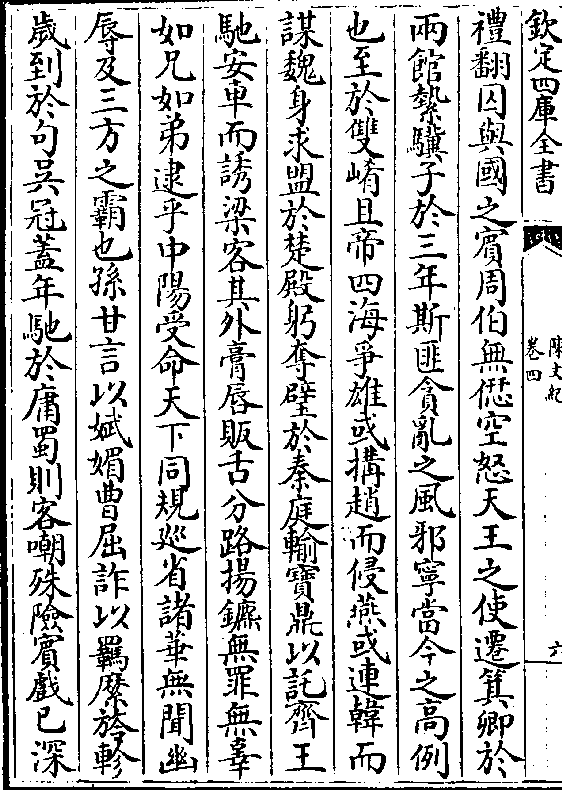 欽定四庫全書
陳文紀
卷四
六
禮翻囚與國之賓周伯無愆空怒天王之使遷箕卿於
兩館縶驥子於三年斯匪貪亂之風邪寧當今之高例
也至於雙崤且帝四海爭雄或搆趙而侵燕或連韓而
謀魏身求盟於楚殿躬奪璧於秦庭輸寶鼎以託齊王
馳安車而誘梁客其外膏唇販舌分路揚鑣無罪無辜
如兄如弟逮乎中陽受命天下同規巡省諸華無聞幽
辱及三方之霸也孫甘言以娬媚曹屈詐以羈縻旍軫
歲到於句吳冠蓋年馳於庸蜀則客嘲殊險賓戲已深